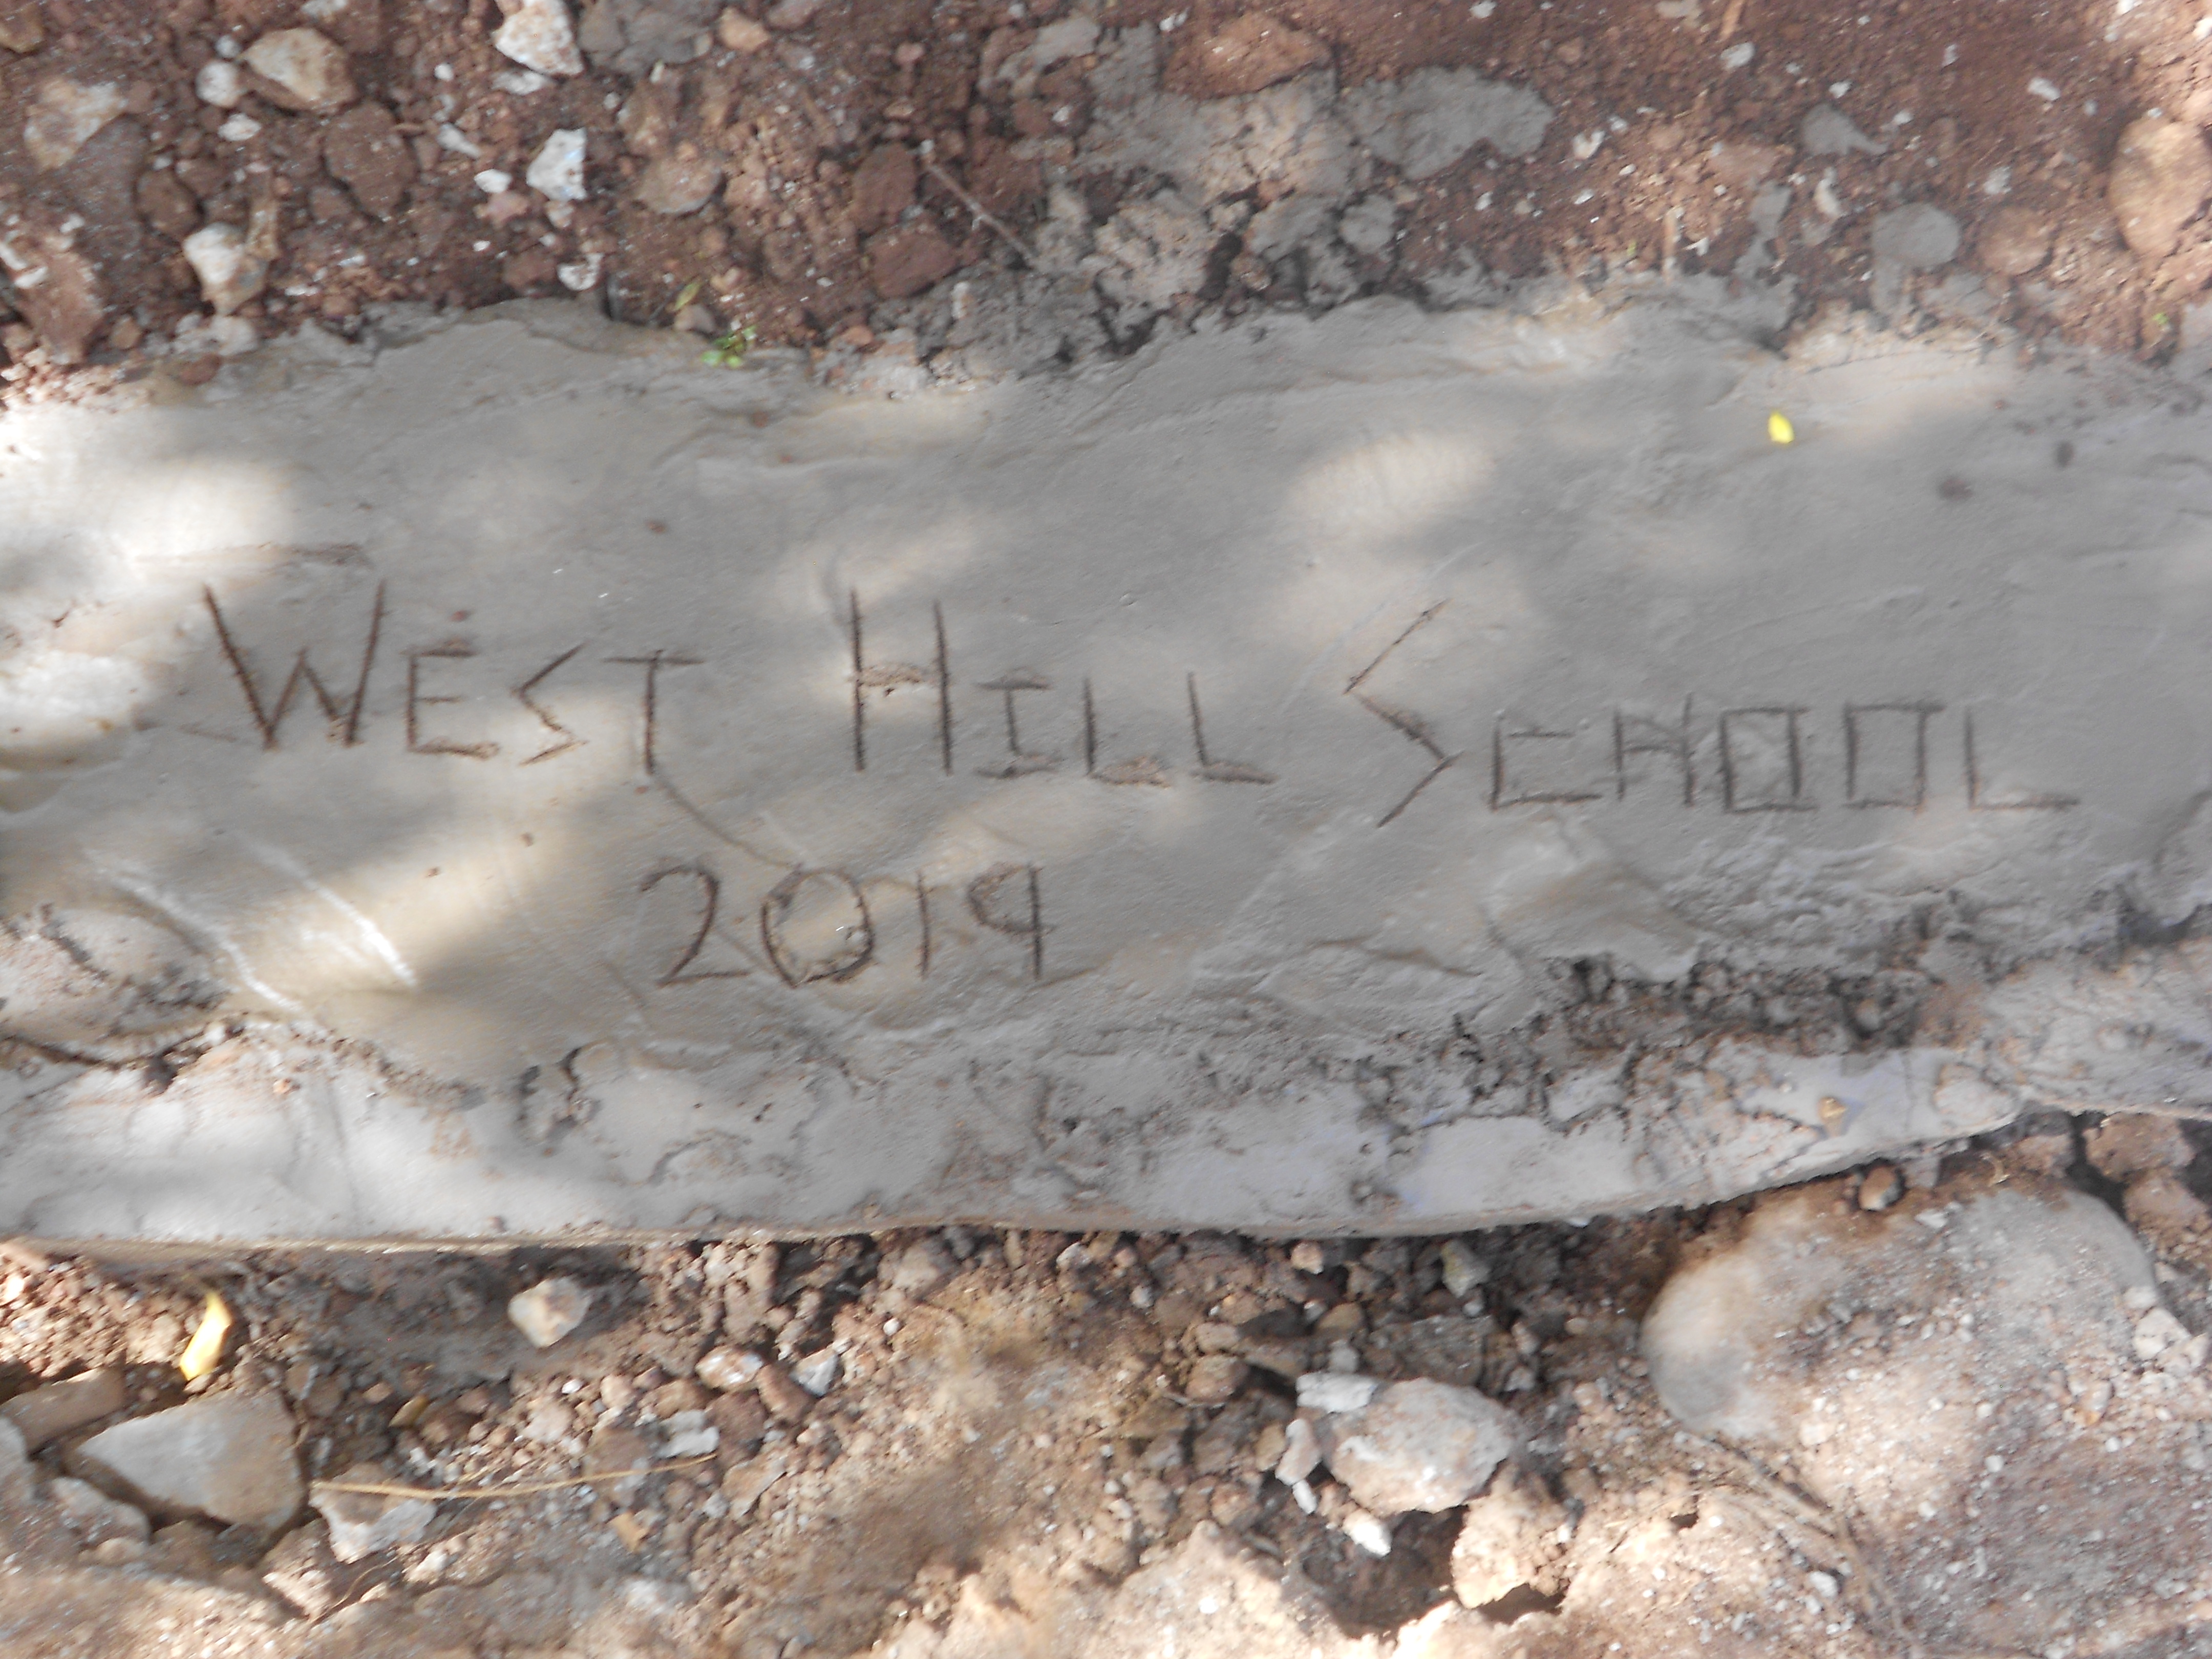 WEST HILL SCHOOL
2019